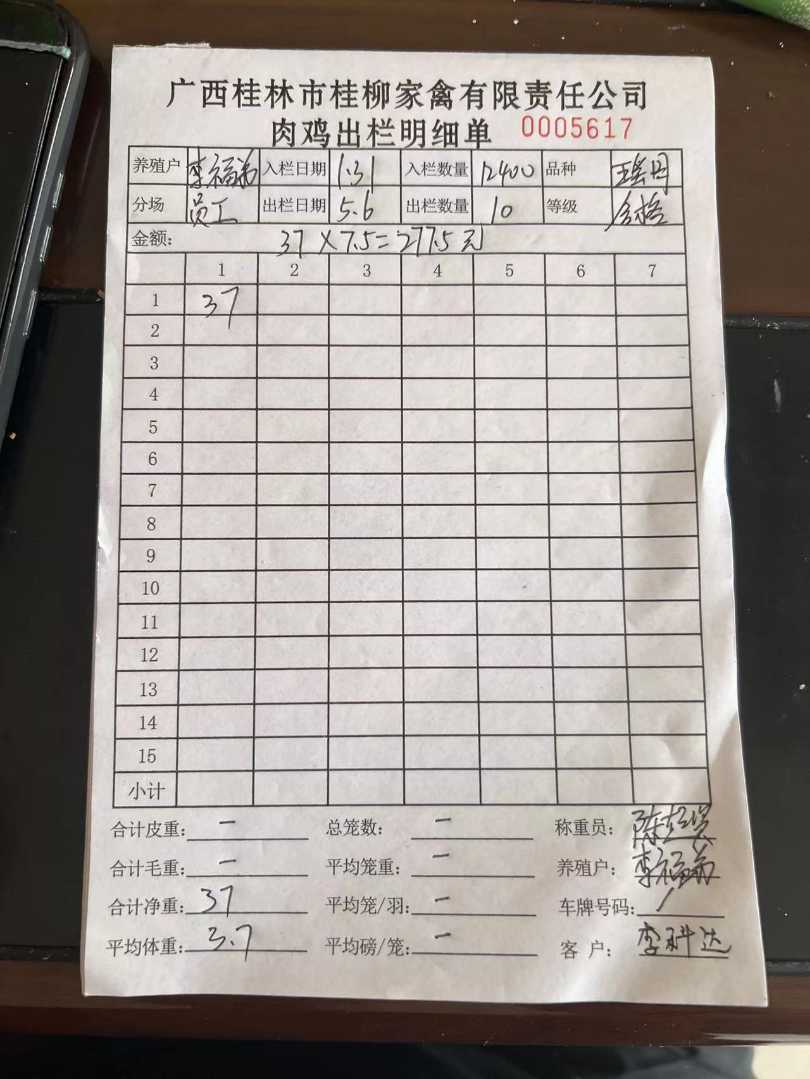 广西桂林市桂柳家禽有限责任公司
肉鸡出栏明细单 0005617
养殖户 李福弟 入栏日期 1.31 入栏数量 12400 品种
分场 员工 出栏日期 5.6 出栏数量 10 等级 合格
金额: 37×7.5=277.5元
1 2 3 4 5 6 7
1 37
2
3
4
5
6
7
8
9
10
11
12
13
14
15
小计
合计皮重: — 总笼数: — 称重员: 陈
合计毛重: — 平均笼重: — 养殖户: 李福弟
合计净重: 37 平均笼/羽: — 车牌号码: /
平均体重: 3.7 平均磅/笼: — 客户: 李科达